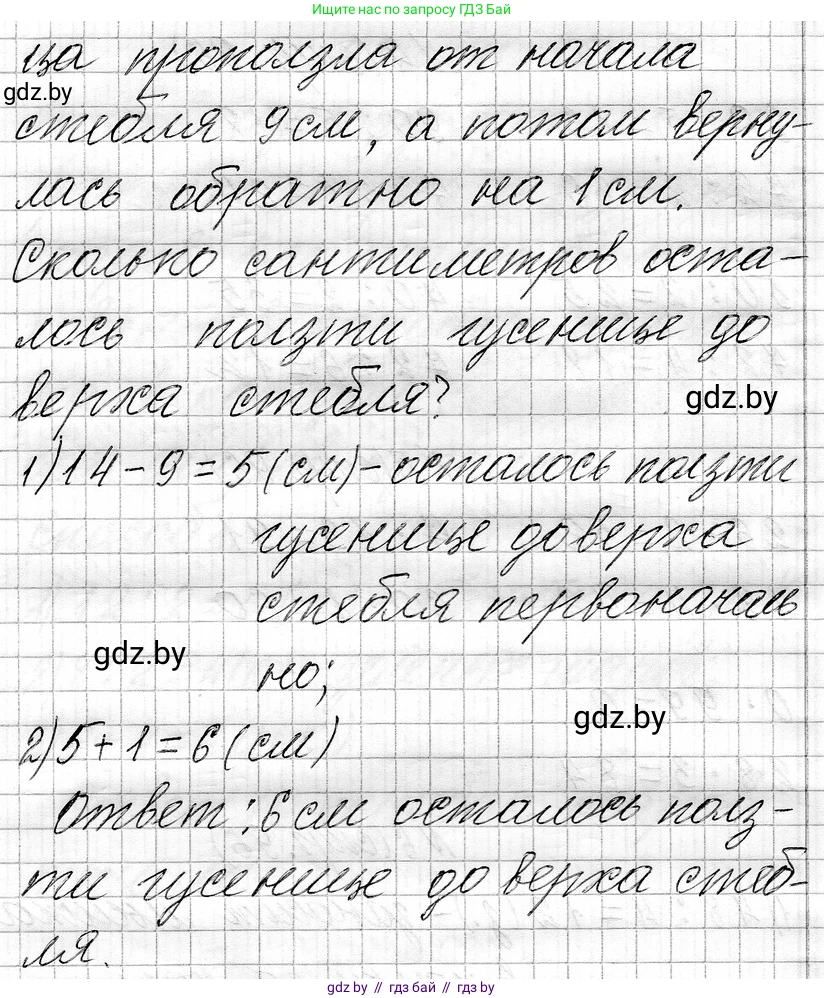 Ищите нас по запросу ГДЗ Бай
ца проползла от начала
gdz.by
стебля 9 см, а потом верну-
лась обратно на 1 см.
Сколько сантиметров оста-
лось ползти гусенице до
верха стебля?
gdz.by
1) 14 - 9 = 5 (см) - осталось ползти
гусенице до верха
стебля первоначаль
gdz.by
но;
gdz.by
2) 5 + 1 = 6 (см)
Ответ: 6 см осталось полз-
ти гусенице до верха стеб-
ля.
gdz.by // гдз бай // гдз by